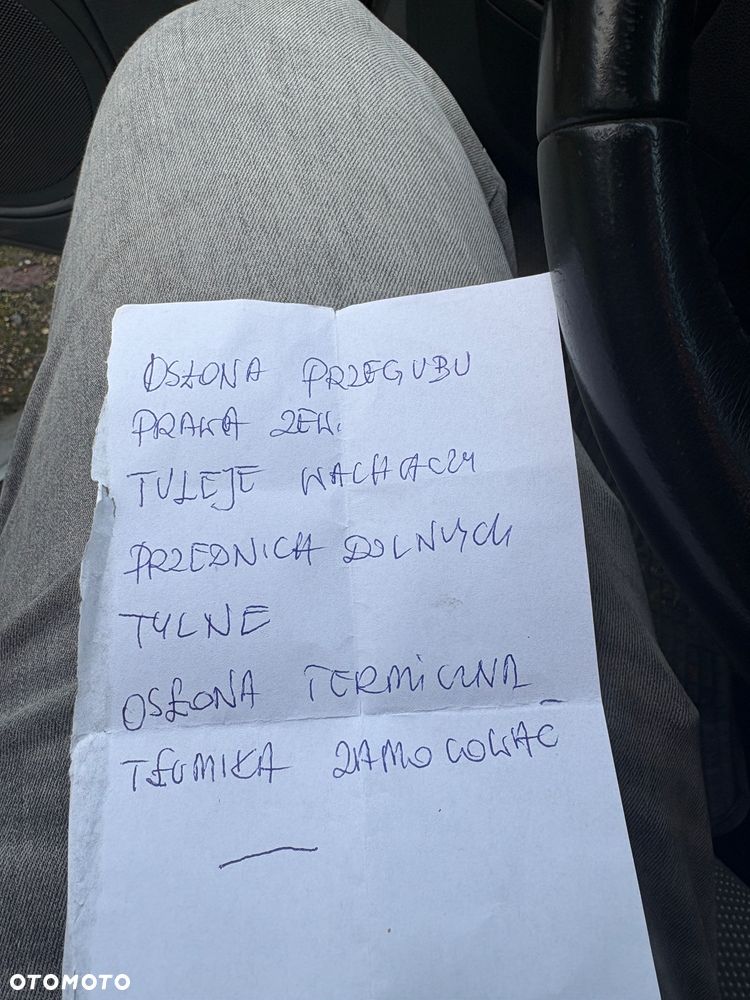 OSŁONA PRZEGUBU
PRAWA ZEW.
TULEJE WACHACZY
PRZEDNICH DOLNYCH
TYLNE
OSŁONA TERMICZNA
TŁUMIKA ZAMOCOWAĆ
OTOMOTO